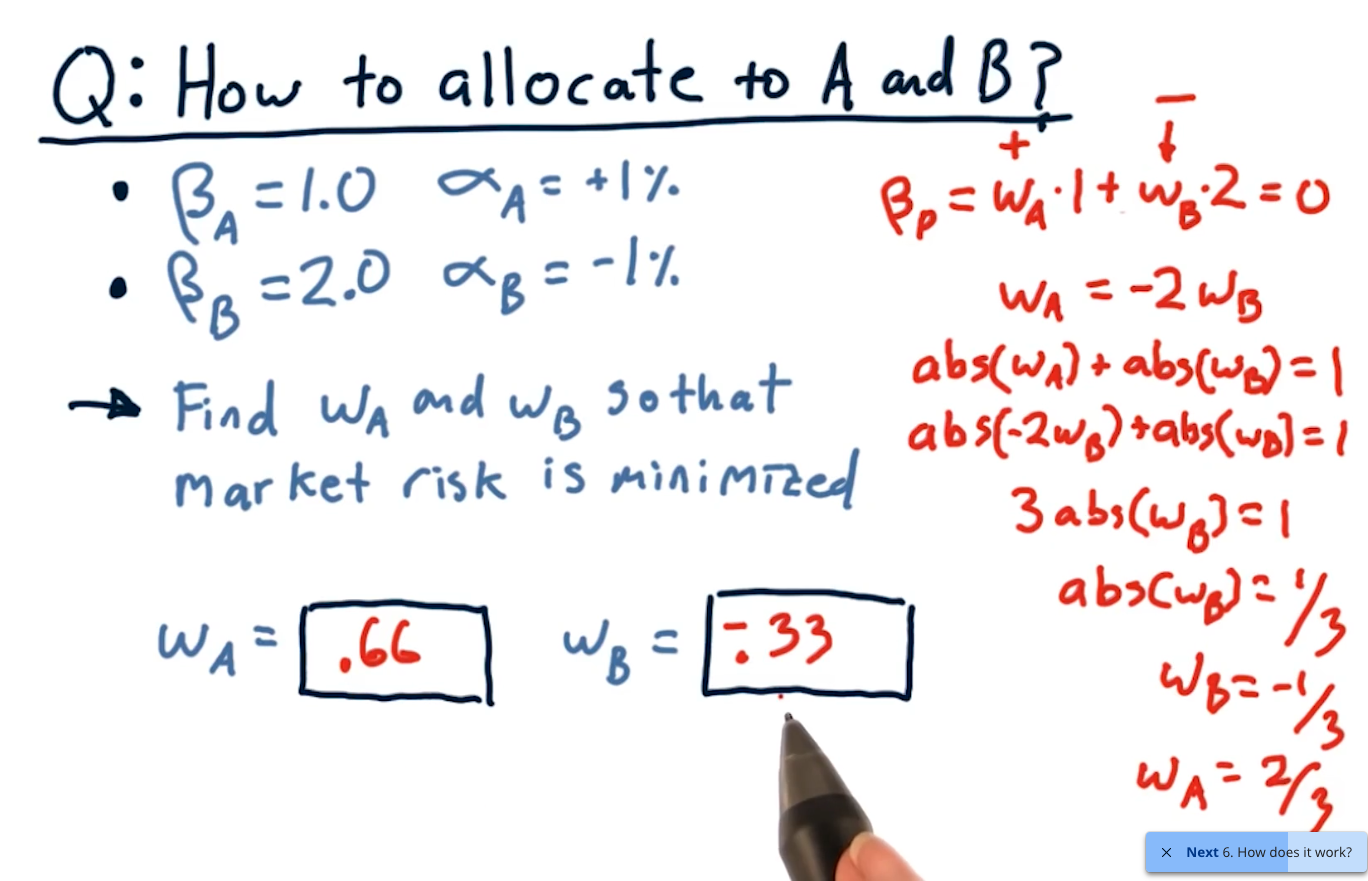 Q: How to allocate to A and B?
• β_A = 1.0 α_A = +1%
• β_B = 2.0 α_B = -1%
→ Find w_A and w_B so that
market risk is minimized
w_A = .66 w_B = -.33
+ −
↓
β_p = w_A · 1 + w_B · 2 = 0
w_A = -2w_B
abs(w_A) + abs(w_B) = 1
abs(-2w_B) + abs(w_B) = 1
3abs(w_B) = 1
abs(w_B) = 1/3
w_B = -1/3
w_A = 2/3
× Next 6. How does it work?